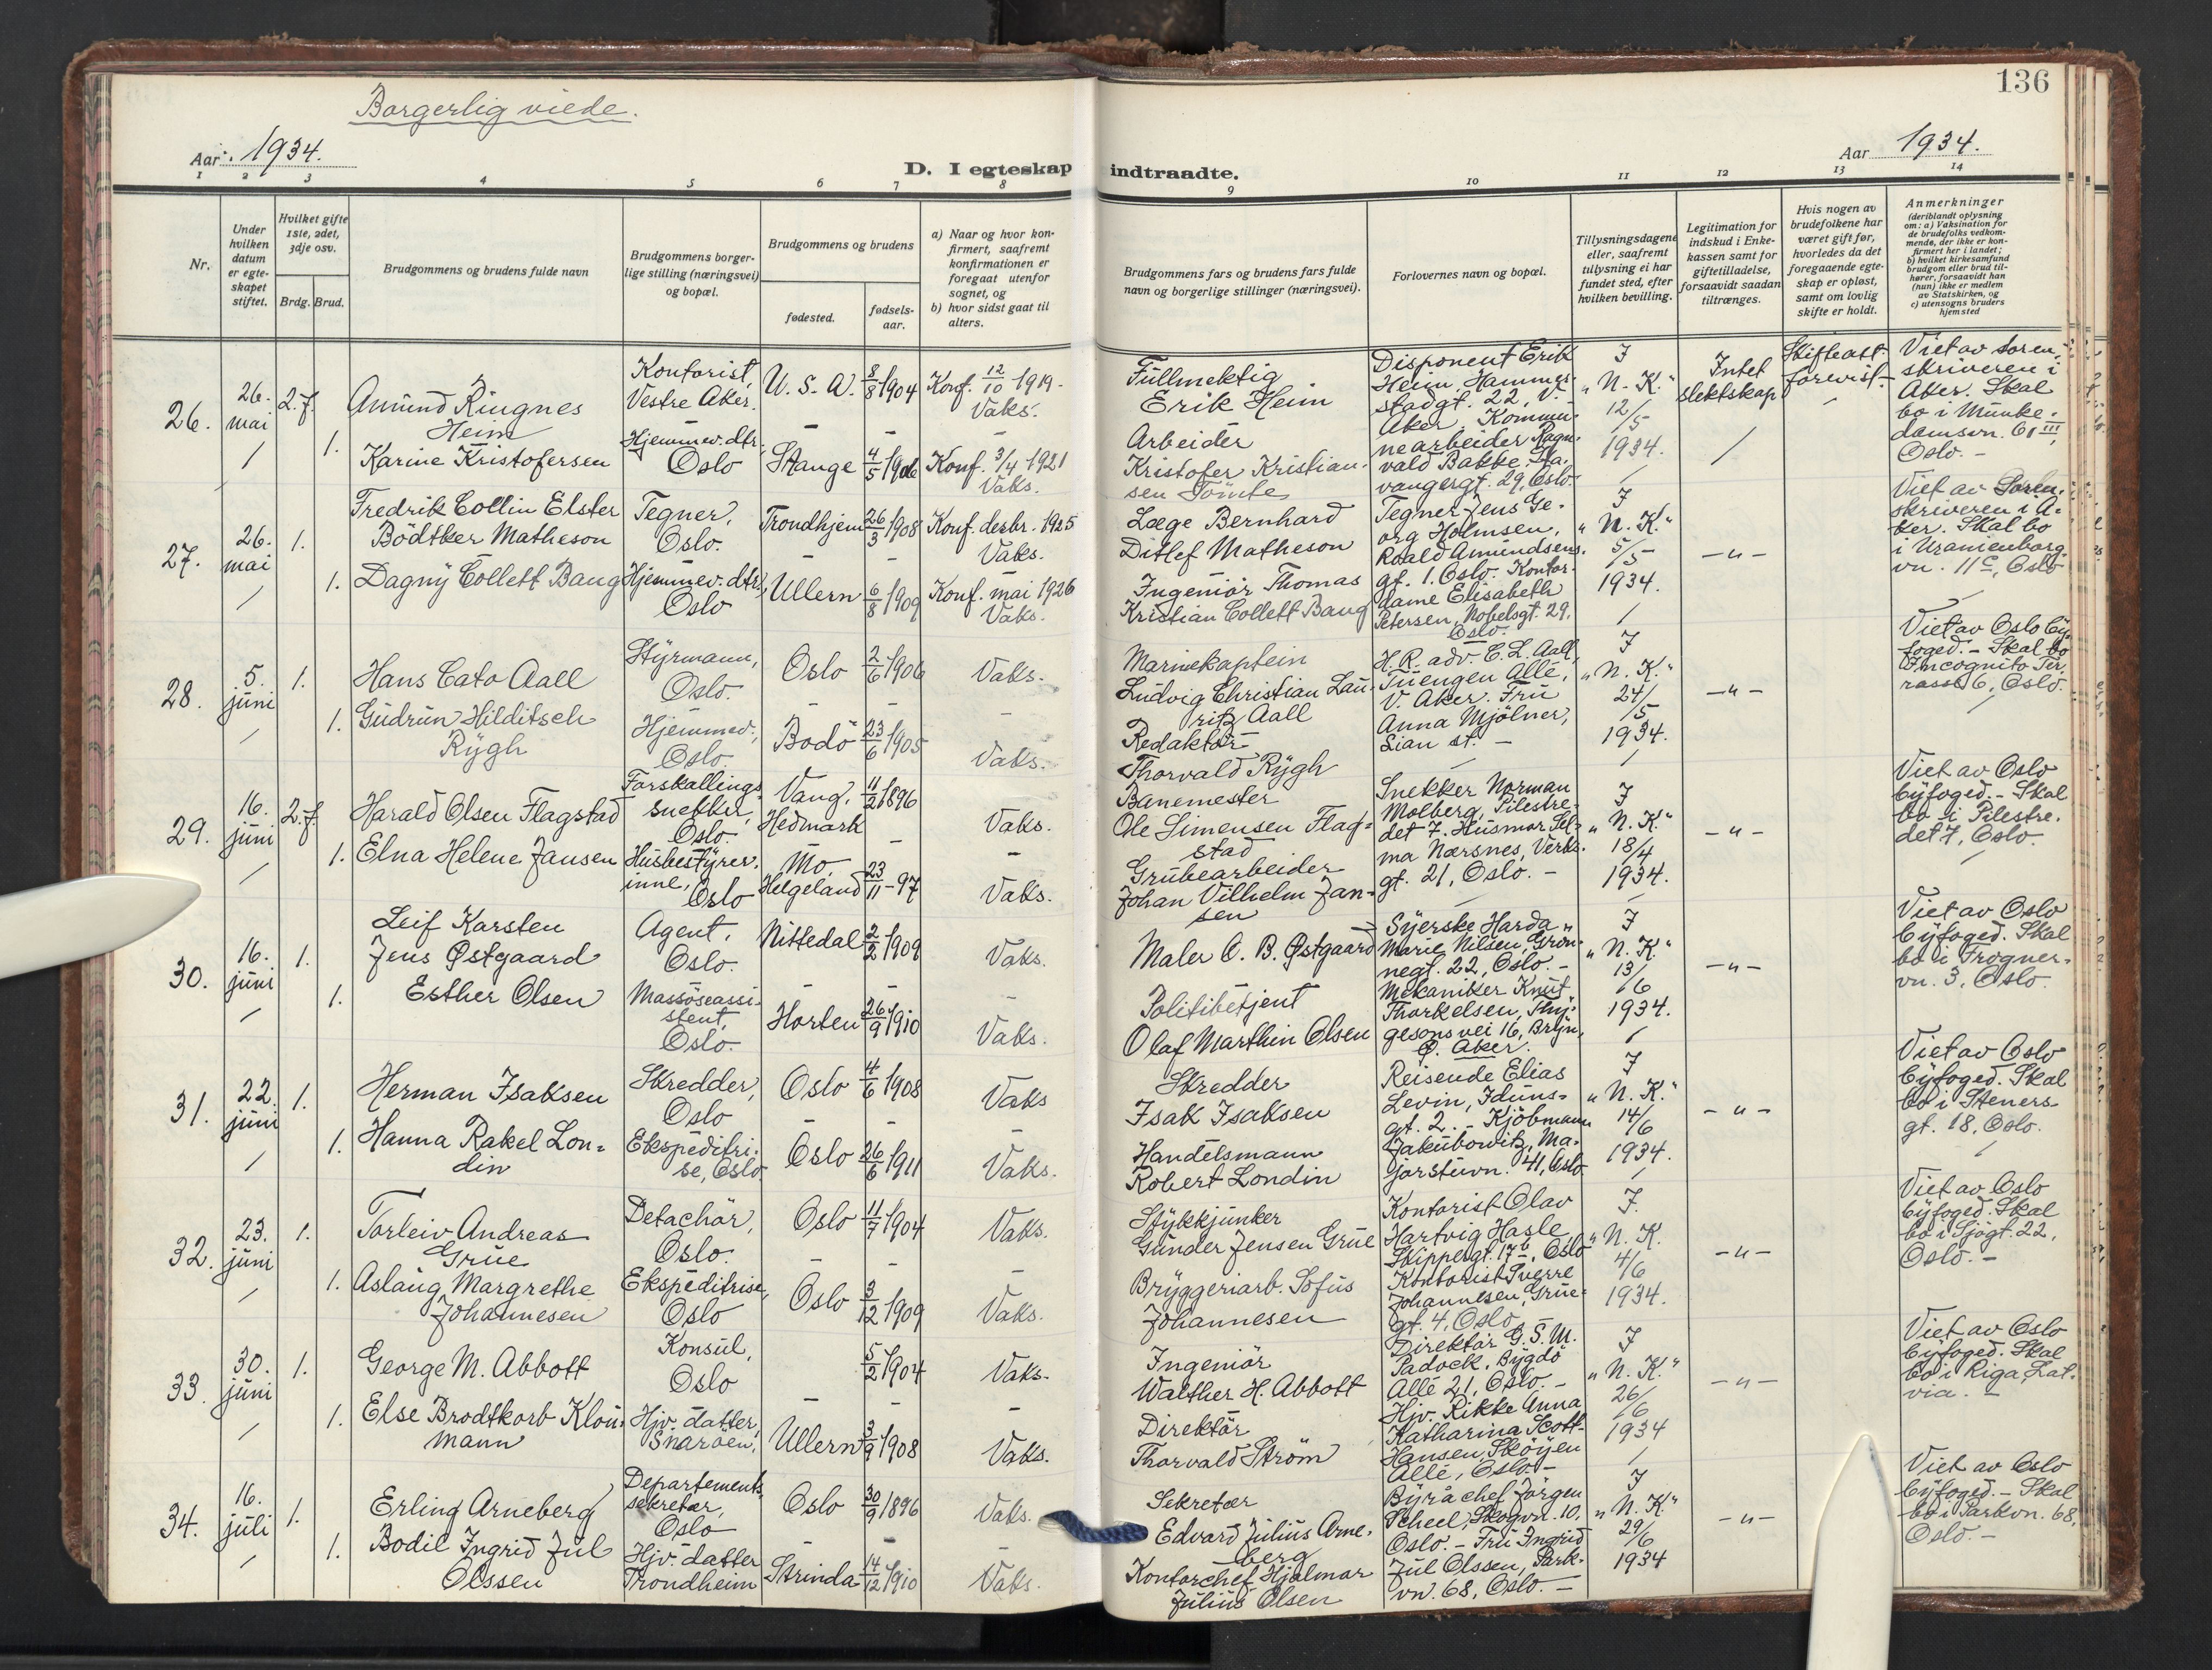 136
Borgerlig viede.
Aar: 1934.
Aar 1934.
D. I egteskap indtraadte.
1 2 3 4 5 6 7 8 9 10 11 12 13 14
Nr.
Under
hvilken
datum
er egte-
skapet
stiftet.
Hvilket gifte
1ste, 2det,
3dje osv.
Brdg. Brud.
Brudgommens og brudens fulde navn
Brudgommens borger-
lige stilling (næringsvei)
og bopæl.
Brudgommens og brudens
fødested.
fødsels-
aar.
a) Naar og hvor kon-
firmert, saafremt
konfirmationen er
foregaat utenfor
sognet, og
b) hvor sidst gaat til
alters.
Brudgommens fars og brudens fars fulde
navn og borgerlige stillinger (næringsvei).
Forlovernes navn og bopæl.
Tillysningsdagene
eller, saafremt
tillysning ei har
fundet sted, efter
hvilken bevilling.
Legitimation for
indskud i Enke-
kassen samt for
giftetilladelse,
forsaavidt saadan
tiltrænges.
Hvis nogen av
brudefolkene har
været gift før,
hvorledes da det
foregaaende egte-
skap er opløst,
samt om lovlig
skifte er holdt.
Anmerkninger
(deriblandt oplysning
om: a) Vaksination for
de brudefolks vedkom-
mende, der ikke er kon-
firmert her i landet;
b) hvilket kirkesamfund
brudgom eller brud til-
hører, forsaavidt han
(hun) ikke er medlem
av Statskirken, og
c) utensogns bruders
hjemsted
26.
26.
mai
2. f.
Amund Ringnes
Heim
Kontorist,
Vestre Aker.
U. S. A.
8/8 1904
Konf. 12/10 1919-
Vaks.
1.
Karine Kristofersen
Hjemmev. dtr.,
Oslo
Stange
4/5 1906
Konf. 3/4 1921
Vaks.
Fullmektig
Erik Heim
Arbeider
Kristofer Kristian-
sen Tomte
Disponent Erik
Heim, Hammer-
stadgt. 22, V.
Aker. Kommu-
nearbeider Ragn-
vald Bakke, Sta-
vangergt. 29, Oslo.
I
"N. K."
12/5
1934.
Intet
slektskap
Skifteatt.
forevist.
Viet av Soren-
skriveren i
Aker. Skal
bo i Munke-
damsvn. 61 III,
Oslo. -
27.
26.
mai
1.
Fredrik Collin Elster
Bödtker Matheson
Tegner,
Oslo.
Trondhjem
26/3 1908
Konf. desbr. 1925
Vaks.
1.
Dagny Collett Baug
Hjemmev. dtr.,
Oslo
Ullern
6/8 1909
Konf. mai 1926
Vaks.
Læge Bernhard
Ditlef Matheson
Ingeniör Thomas
Kristian Collett Baug
Tegner Jens Ge-
org Holmsen,
Roald Amundsens
gt. 1. Oslo. Kontor-
dame Elisabeth
Petersen, Nobelsgt. 29,
Oslo.
I
"N. K."
5/5
1934.
-"-
Viet av Soren-
skriveren i A-
ker. Skal bo
i Uranienborg-
vn. 11 c, Oslo
28.
5.
juni
1.
Hans Cato Aall
Styrmann,
Oslo.
Oslo
2/6 1906
Vaks.
1.
Gudrun Hilditsch
Rygh
Hjemmev.,
Oslo.
Bodö
23/6 1905
Vaks.
Marinekaptein
Ludvig Christian Lau-
ritz Aall
Redaktör
Thorvald Rygh
H. R. adv. C. L. Aall,
Tuengen Allé,
V. Aker. Fru
Anna Mjölner,
Lian st. -
I
"N. K."
24/5
1934.
-"-
Viet av Oslo By-
foged. - Skal bo
Incognito Ter-
rasse 6, Oslo.
29.
16.
juni
2. f.
Harald Olsen Flagstad
Forskallings-
snekker,
Oslo.
Vang,
Hedmark
11/2 1896
Vaks.
1.
Elna Helene Jansen
Husbestyrer-
inne,
Oslo
Mo,
Helgeland
23/11 - 97
Vaks.
Banemester
Ole Simensen Flag-
stad
Grubearbeider
Johan Vilhelm Jan-
sen
Snekker Norman
Molberg, Pilestre-
det 7. Husmor Sel-
ma Nærsnes, Verks-
gt. 21, Oslo. -
I
"N. K."
18/4
1934.
-"-
Viet av Oslo
byfoged. - Skal
bo i Pilestre-
det 7, Oslo.
30.
16.
juni
1.
Leif Karsten
Jens Østgaard
Agent,
Oslo.
Nittedal
2/2 1909
Vaks.
1.
Esther Olsen
Massöseassi-
stent,
Oslo.
Horten
26/9 1910
Vaks.
Maler O. B. Østgaard
Politibetjent
Olaf Marthin Olsen
Syerske Harda
Marie Nilsen, Grön-
negt. 22, Oslo. -
Mekaniker Knut
Thorkelsen,
gesons vei 16, Bryn,
Ø. Aker.
I
"N. K."
13/6
1934.
-"-
Viet av Oslo
byfoged. Skal
bo i Frogner-
vn. 3, Oslo.
31.
22.
juni
1.
Herman Isaksen
Skredder,
Oslo
Oslo
4/6 1908
Vaks
1.
Hanna Rakel Lon-
din
Ekspeditri-
se, Oslo.
Oslo
26/6 1911
Vaks.
Skredder
Isak Isaksen
Handelsmann
Robert Londin
Reisende Elias
Levin, Iduns-
gt. 2. - Kjöbmann
Jakubowitz, Ma-
jorstuvn. 41, Oslo
I
"N. K."
14/6
1934.
-"-
Viet av Oslo
byfoged. Skal
bo i Steners-
gt. 18, Oslo.
32.
23.
juni
1.
Torleiv Andreas
Grue
Detachör,
Oslo.
Oslo
11/7 1904
Vaks.
1.
Aslaug Margrethe
Johannesen
Ekspeditrise,
Oslo
Oslo
3/12 1909
Vaks.
Stykkjunker
Gunder Jensen Grue
Bryggeriarb. Sofus
Johannesen
Kontorist Olav
Hartvig Hasle
Skippergt. 17 b, Oslo
Kontorist Sverre
Johannesen, Grue-
gt. 4, Oslo.
I.
"N. K.
4/6
1934.
-"-
Viet av Oslo
byfoged. Skal
bo i Sjögt. 22,
Oslo. -
33.
30.
juni
1.
George M. Abbott
Konsul,
Oslo
5/2 1904
Vaks.
1.
Else Brodtkorb Klou-
mann
Hjv. datter,
Snaröen,
Ullern
3/9 1908
Vaks.
Ingeniör
Walther H. Abbott
Direktör
Thorvald Ström
Direktör G. S. M.
Padock, Bygdö
Allé 21, Oslo. -
Hjv. Rikke Anna
Katharina Scott-
Hansen, Sköyen
Allé, Oslo. -
I
"N. K."
26/6
1934
-"-
Viet av Oslo
byfoged. Skal
bo i Riga, Lat-
via. -
34.
16.
juli
1.
Erling Arneberg
Departements-
sekretær,
Oslo
Oslo
30/9 1896
Vaks.
1.
Bodil Ingrid Jul
Olssen
Hjv. datter
Trondheim
Strinda
14/12 1910
Vaks.
Sekretær
Edvard Julius Arne-
berg
Kontorchef Hjalmar
Julius Olsen
Byråchef Jörgen
Scheel, Skogvn. 10,
Oslo. - Fru Ingrid
Jul Olssen, Park-
vn. 68, Oslo. -
I
"N. K"
29/6
1934
-"-
Viet av Oslo
byfoged. - Skal
bo i Parkvn. 68,
Oslo. -